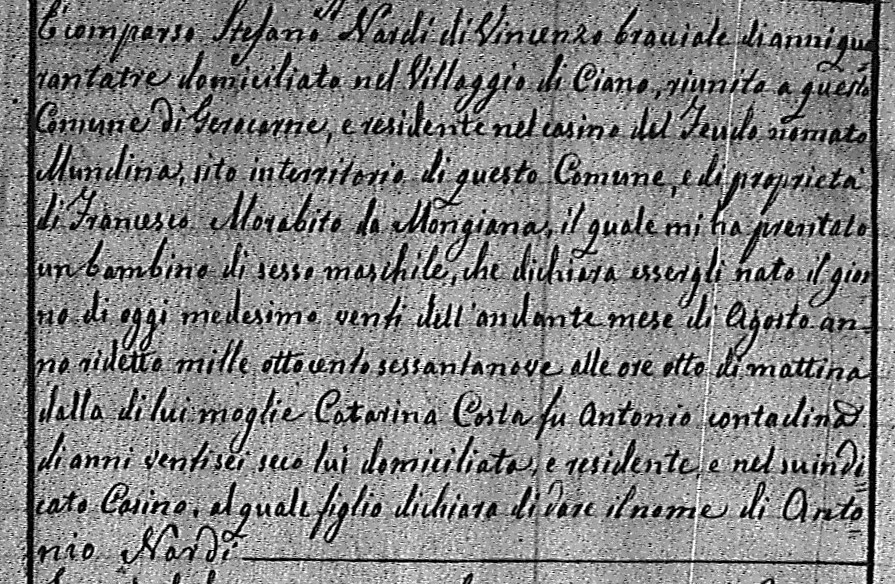 È comparso Stefano Nardi di Vincenzo bracciale di anni qua
rantatre domiciliato nel Villaggio di Ciano, riunito a questo
Comune di Gerocarne, e residente nel casino del Feudo nomato
Mundina, sito in territorio di questo Comune, e di proprietà
di Francesco Morabito da Mongiana, il quale mi ha prentato
un bambino di sesso maschile, che dichiara essergli nato il gior
no di oggi medesimo venti dell'andante mese di Agosto an-
no ridetto mille ottocento sessantanove alle ore otto di mattina
dalla di lui moglie Catarina Costa fu Antonio contadina
di anni ventisei seco lui domiciliata, e residente, e nel suindi
cato Casino, al quale figlio dichiara di dare il nome di Anto
nio Nardi